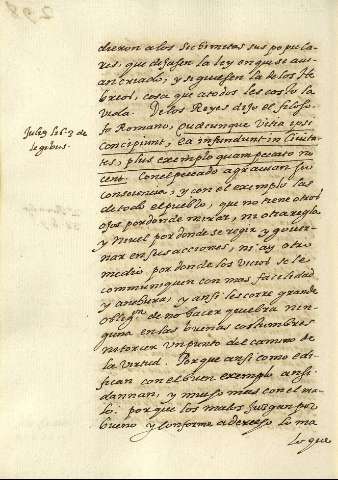 298
dieron a los Sichimitas sus popula
res, que dejasen la ley en que se aui
an criado, y siguiesen la de los He
breos, cosa que a todos les costo la
Vida. De los Reyes dijo el filoso
fo Romano, Qudcunque Vitia ipsi
Concipiunt, ea infundunt in Ciuita
tes, plus exemplo quam pecato no
cent. Con el peccado agrauian su
consciencia, y con el exemplo las
de todo el pueblo, que no tiene otros
ojos por donde mirar, ni otra regla
y Niuel por donde se regir y gouer
nar en sus acciones, ni ay otro
medio por donde los vicios se le
communiquen con mas facilidad
y anchura, y ansi les corre grande
oblig.on de no hacer quiebra nin
guna en las buenas costumbres
ni torcer un punto del camino de
la virtud. Porque ansi como edi
fican con el buen exemplo ansi
dannan, y mucho mas con el ma
lo: porque los malos juzgan por
bueno y conforme a derecho lo ma
lo que
de
legibus.